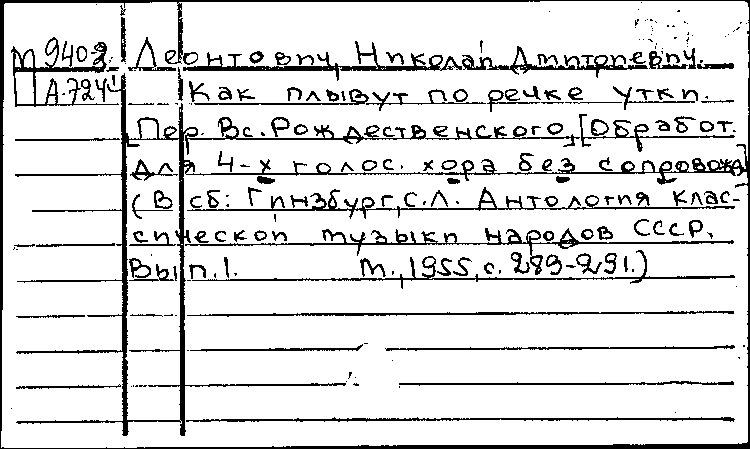 М 940-3 Леонтович, Николай Дмитриевич.
А-724 Как плывут по речке утки.
[Пер. Вс. Рождественского.] [Обработ.
для 4-х голос. хора без сопровожд.]
(В сб: Гинзбург, С.Л. Антология клас-
сической музыки народов СССР.
Вып. 1. М., 1955, с. 289-291.)